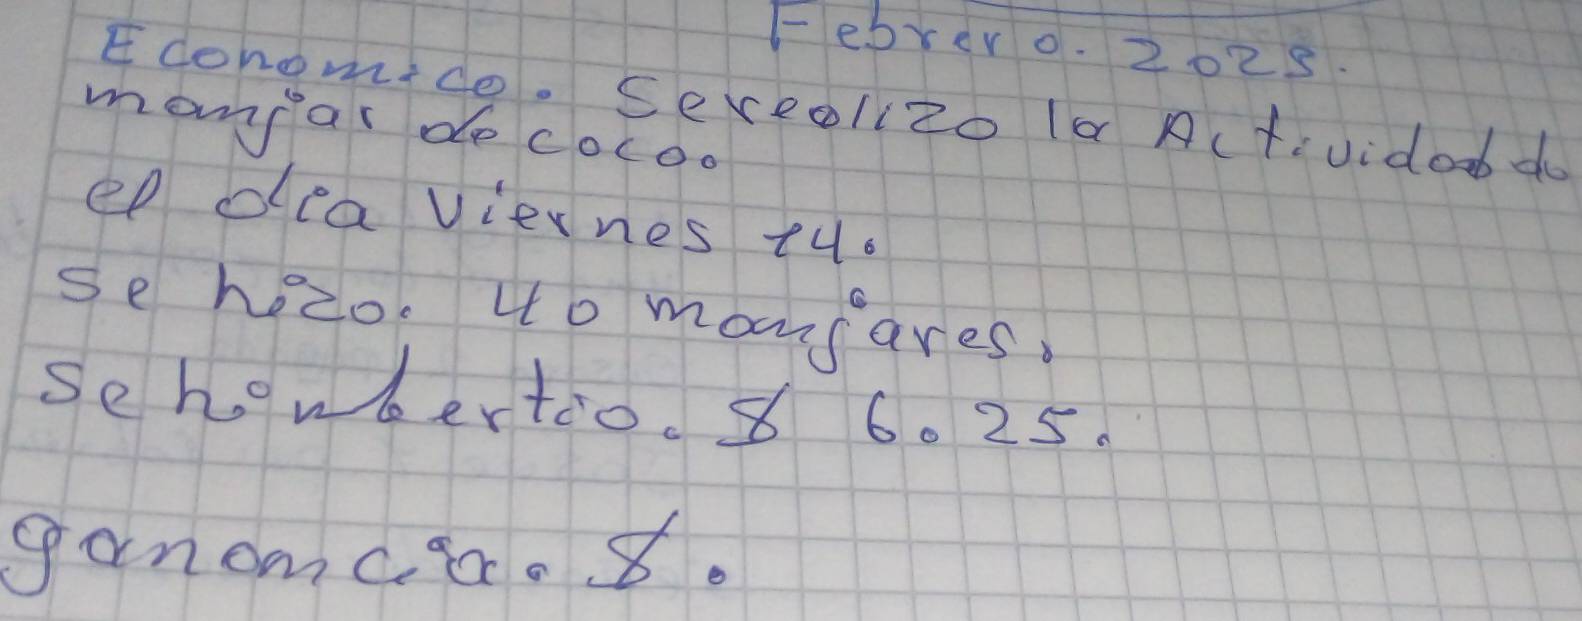 Febrero. 2025.
Economico. Serealizo la Actividad de
manjar de coco.
el dia viernes 14.
se hizo. 40 manjares.
se hinbertio. $ 6.25.
ganancia. $.